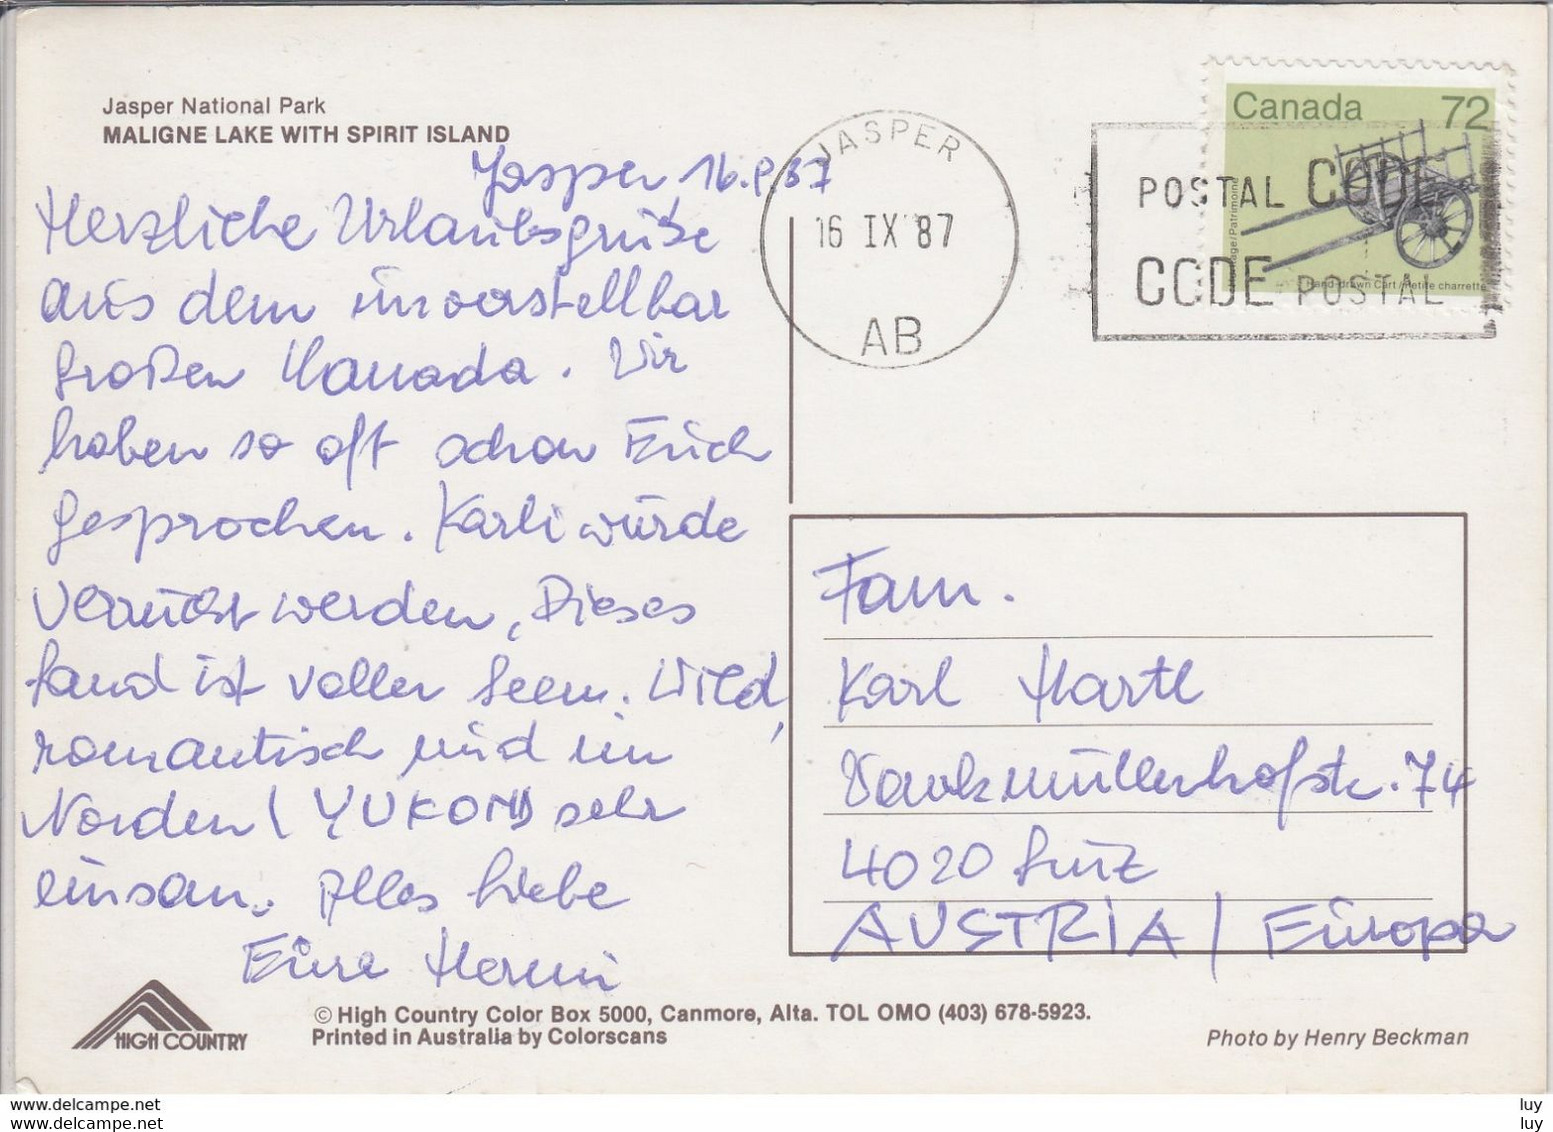 Jasper National Park
MALIGNE LAKE WITH SPIRIT ISLAND
Jasper 16.9.87
Herzliche Urlaubsgrüße
aus dem unvorstellbar
großen Kanada. Wir
haben so oft schon Euch
gesprochen. Karli würde
verrückt werden, Dieses
Land ist voller Seen. Wild,
romantisch und im
Norden (YUKON) sehr
einsam. Alles Liebe
Eure Hermi
HIGH COUNTRY
© High Country Color Box 5000, Canmore, Alta. TOL OMO (403) 678-5923.
Printed in Australia by Colorscans
JASPER
16 IX 87
AB
Canada 72
POSTAL CODE
CODE POSTAL
Heritage/Patrimoine
Hand-drawn Cart/Petite charrette
Fam.
Karl Hartl
74
4020 Linz
AUSTRIA / Europa
Photo by Henry Beckman
www.delcampe.net
www.delcampe.net
luy
luy